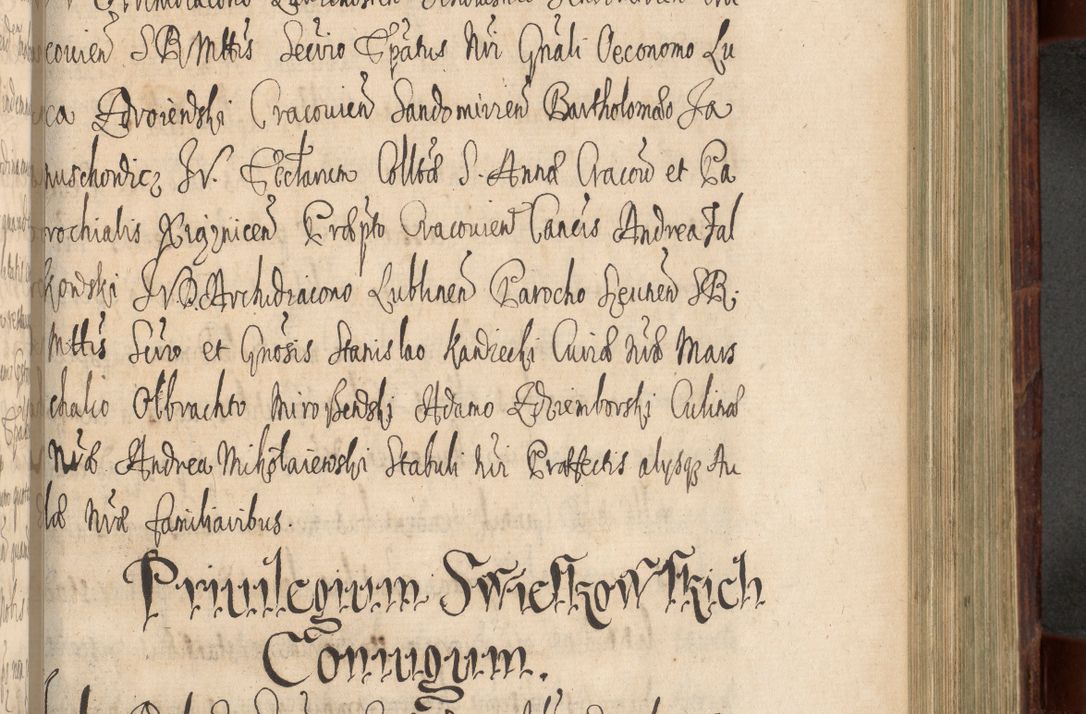 couien̄ S R Mttis Secrio Ep̄atus Nri Gn̄ali Oeconomo Lu
ca Zdroiewski Cracouien̄ Sandomirien̄ Bartholomæo Ja
nuschowicz Jr. Ecclarum Colltæ S. Annæ Cracou et Pa
rochialis Xiąznicen̄ Præpto Cracouien̄ Can̄cis Andrea Fal
kowski JVD. Archidiacono Lublinen̄ Parocho SR.
Mttis Secrio et Gn̄osis Stanislao Kandzecki Curiæ Nræ Mars
chalco Olbrachto Adamo Zdziemborski Culinæ
Nræ Andrea Mikołaiewski Stabuli Nri Præfectis alysqȝ Au
læ Nræ familiaribus.
Priuilegium Swieſkowſkich
Coniugum.